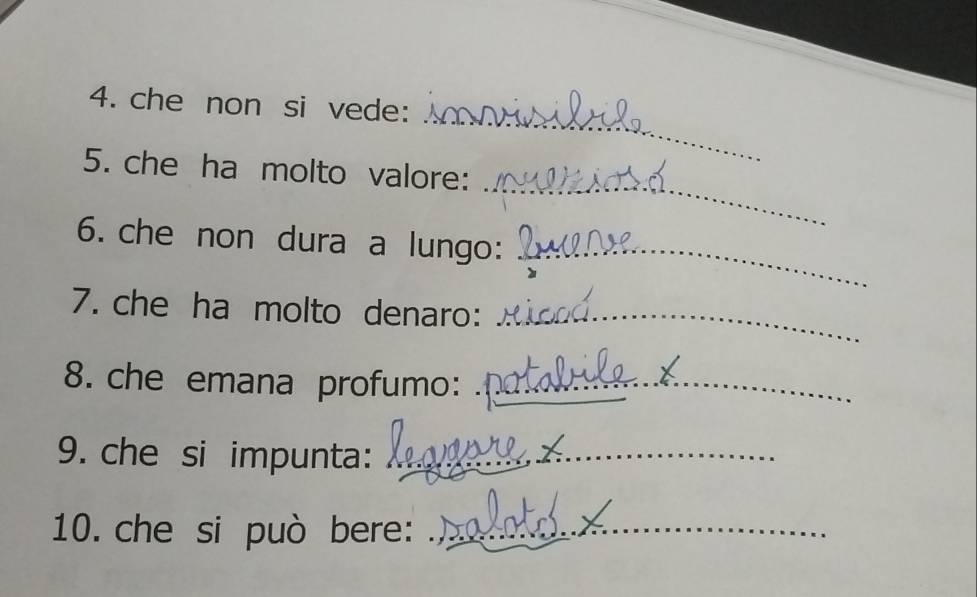 4. che non si vede: invisibile
5. che ha molto valore: prezioso
6. che non dura a lungo: breve
7. che ha molto denaro: ricco
8. che emana profumo: potabile x
9. che si impunta: leggere x
10. che si può bere: salato x